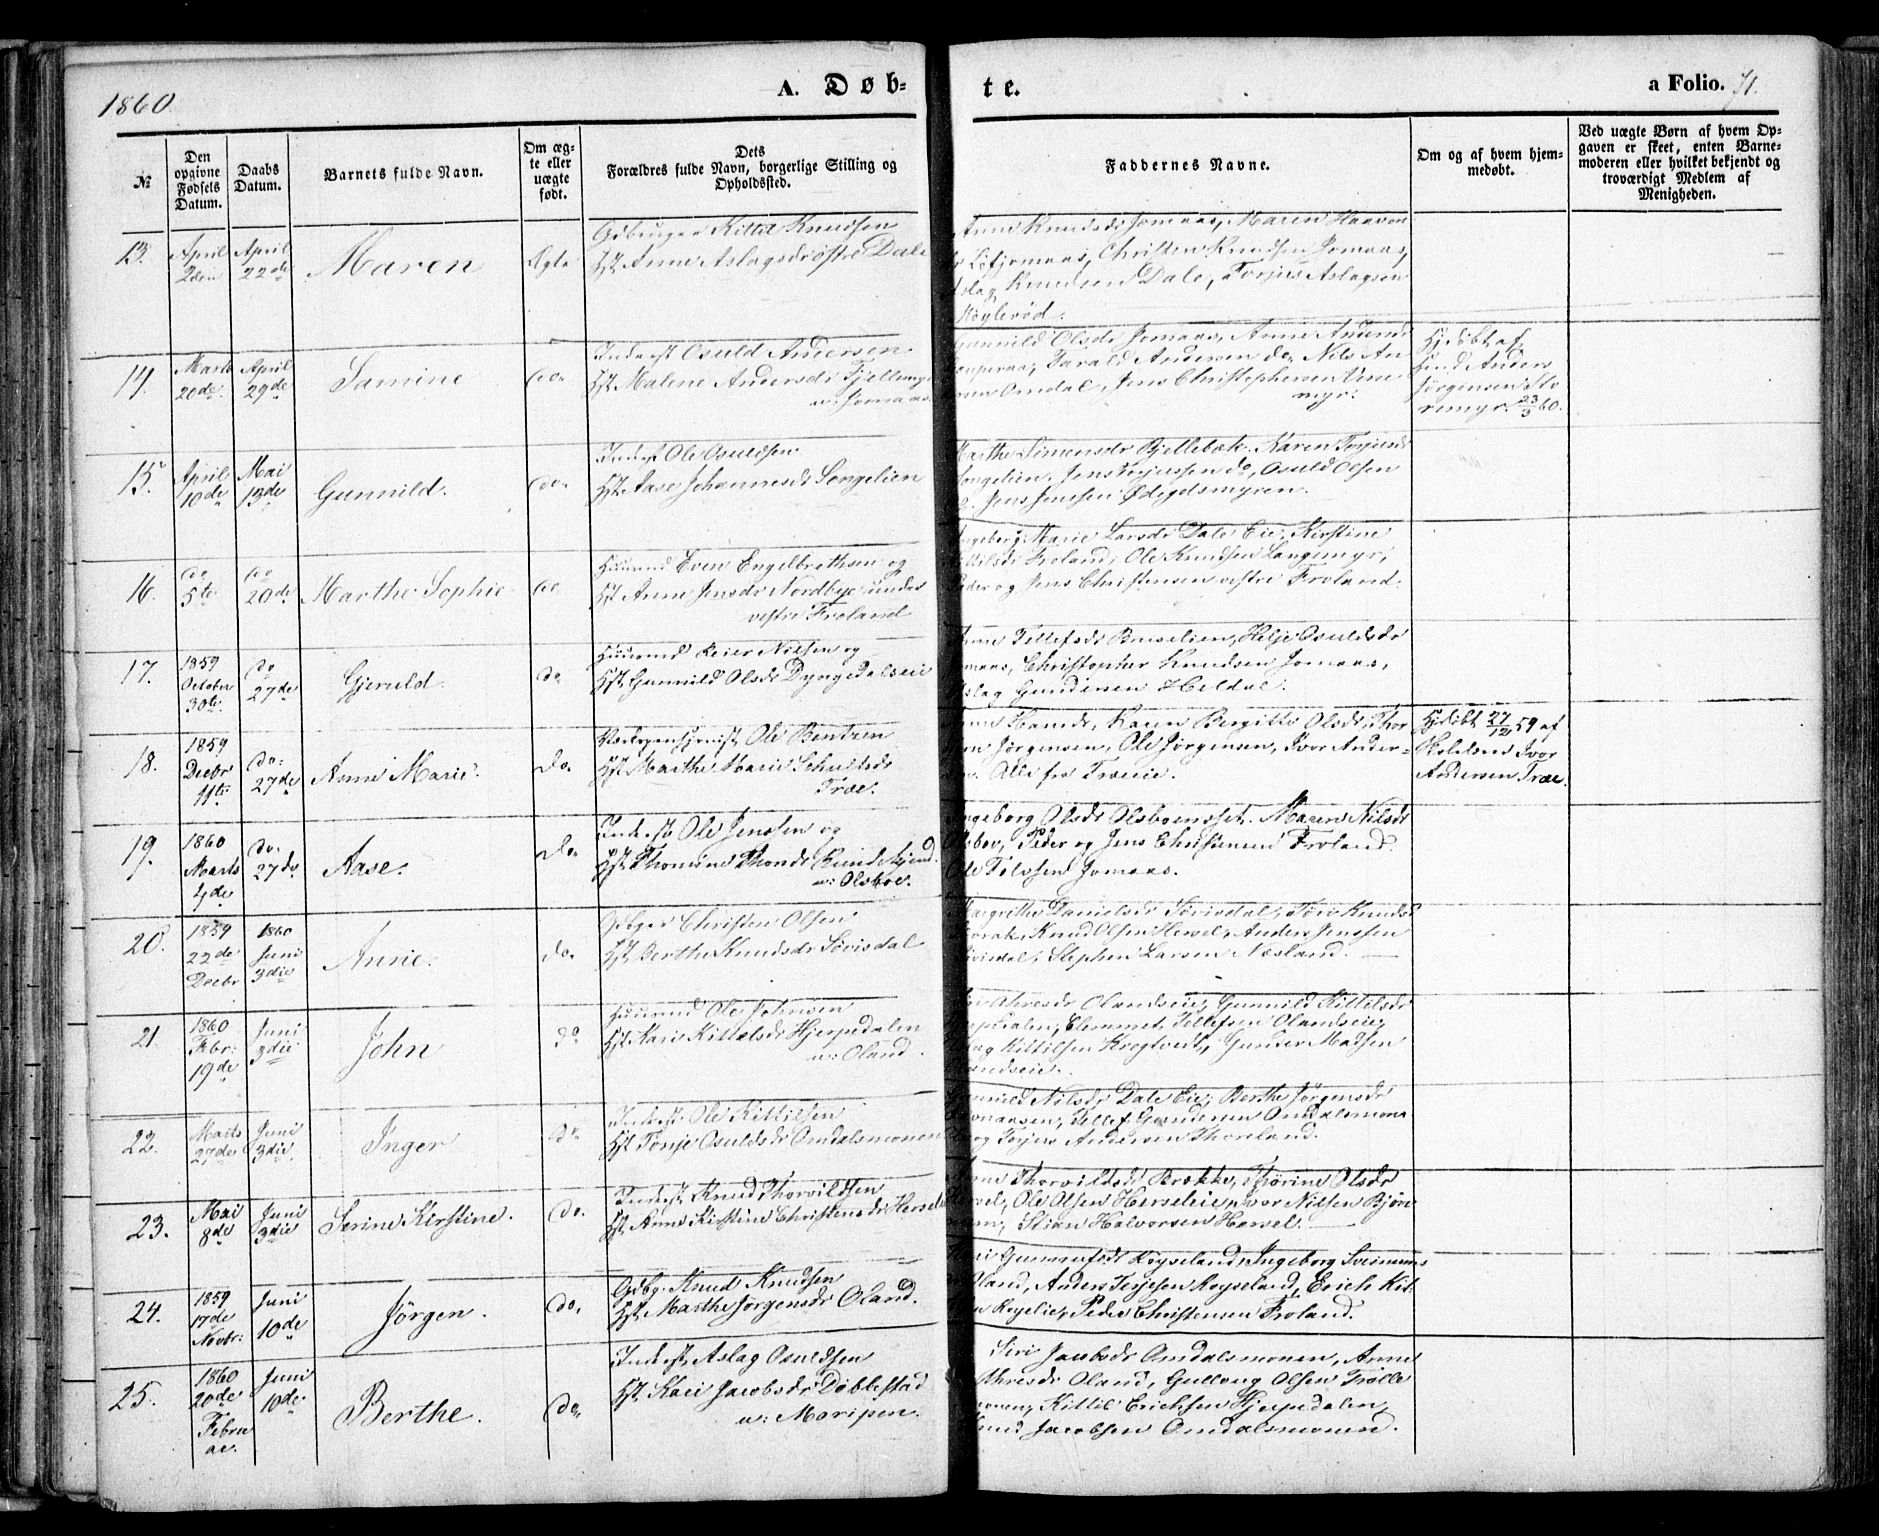 1860
A. Døb-
te.
a Folio. 71.
№
Den opgivne Fødsels Datum.
Daabs Datum.
Barnets fulde Navn.
Om ægte eller uægte født.
Dets Forældres fulde Navn, borgerlige Stilling og Opholdssted.
Faddernes Navne.
Om og af hvem hjemmedøbt.
Ved uægte Børn af hvem Opgaven er skeet, enten Barnemoderen eller hvilket bekjendt og troværdigt Medlem af Menigheden.
13.
April 2den
April 22de
Maren
Ægte
Gdbruger Kittil Knudsen
Hst Anne Aslagsdr østre Dale
Anne Knudsdr Jomaas, Maren Haavor
Løfjomaas, Christen Knudsen Jomaas,
Aslag Knudsen Dale, Torjus Aslagsen
Røylerød.
14.
Marts 20de
April 29de
Samine
do.
Inderst Osuld Andersen
Hst Malene Andersdr Fjellmyr
u: Jomaas.
Gunnild Olsdr Jomaas, Anne Andersd
Tarald Andersen do. Nils An
Omdal, Jens Christophersen Vene
myr.
Hj. døbt af
Anders
Jørgensen Sto
remyr. 23/3 60.
15.
April 10de
Mai 13de
Gunnild.
do.
Inderst Ole Osuldsen
Hst. Aase Johannesdr Songelien
Marthe Simensdr Bjellebæk, Karen Torjusdr
Songelien, Jens Torjussen do, Osuld Olsen
Jens Jensen Ødegdsmyren.
16.
do 5te
do 20de
Marthe Sophie
do
Huusmd Even Engelbrethsen og
Hst Anne Jensdr Nordbye under
vestre Froland
Ingeborg Marie Larsdr Dale Eie, Kirstine
Nilsdr Froland, Ole Knudsen Langemyr,
Peder og Jens Christensen vestre Froland.
17.
1859 October 30te.
do 27de
Gjeruld.
do
Huusmd Reier Nielsen og
Hst. Gunnild Olsdr Dyngedalseie
Anne Tellefsdr Buselien, Helje Osuldsdr
Jomaas, Christopher Knudsen Jomaas,
Aslag Gundersen Heldal.
18.
1859 Decbr 11te
do: 27de
Anne Marie.
do.
Ole Bentzen
Hst Marthe Marie
Træe.
Karen Bergitte Olsdr, Thor
Jørgensen, Ole Jørgensen, Ivor Ander-
Alle fra Træeie.
Hj. døbt 27/12 59 af
Skolelærer Ivor
Andersen Træe.
19.
1860 Marts 4de
do. 27de
Aase.
do.
Inderst Ole Jensen og
Hst Thomine
u: Olsboe.
Ingeborg Olsdr Olsboensset. Maren Nilsdr
Olsboe, Peder og Jens Christensen Froland
Ole Tolssen Jomaas.
20.
1859 22de Decbr
1860 Juni 3die
Anne.
do.
Gdbger Christen Olsen
Hst Berthe Knudsdr Sørisdal
Margrethe Danielsdr Sørisdal, Tore Knudsd
Knud Olsen Hersel, Anders Jenssen
Sørisdal, Stephen Larsen Næsland.
21.
1860 Febr: 19de
Juni 3die
John
do
Huusmd Ole Johnsen
Hst Kari Kittelsdr Hjerpedalen
u: Oland.
Olandseie, Gunnild Kittelsdr
Hjerpedalen, Clemmet Tellefsen Olandseie,
Aslag Kittilsen Krogtveit, Gunder Madsen
Olandseie.
22.
Marts 27de
Juni 3die
Inger
do.
Inderst Ole Kittilsen
Hst Tonje Osuldsdr Omdalsmonen
Gunnild Nilsdr Dale Eie, Berthe Jørgensdr
Tellef Gundersen Omdalsmonen
og Torjus Andersen Thoreland.
23.
Mai 8de
Juni 3die
Serine Kirstine.
do.
Inderst Knud Thorvildsen
Hst. Anne Kirstine Christensdr Hersel
Anne Thorvildsdr Brække, Thorine Olsdr
Hersel, Ole Olsen Herseleie, Ivor Nilsen Bjørn
Stian Halvorsen Hersel.
24.
1859 17de Novbr:
Juni 10de
Jørgen.
do.
Gdbg. Knud Knudsen
Hst Marthe Jørgensdr Oland.
Gunnulfsdr Røyseland, Ingeborg
Oland, Anders Terjesen Røyseland, Erich Kit
Røyelie, Peder Christensen Froland.
25.
1860 20de Februar.
Juni 10de
Berthe.
do.
Inderst, Aslag Osuldsen
Hst. Kari Jacobsdr Døblestad
u: Maripen.
Siri Jacobsdr Omdalsmonen, Anne
Oland, Gullaug Olsen Trolle
monen, Kittil Ericksen Hjerpedalen,
Knud Jacobsen Omdalsmonen.